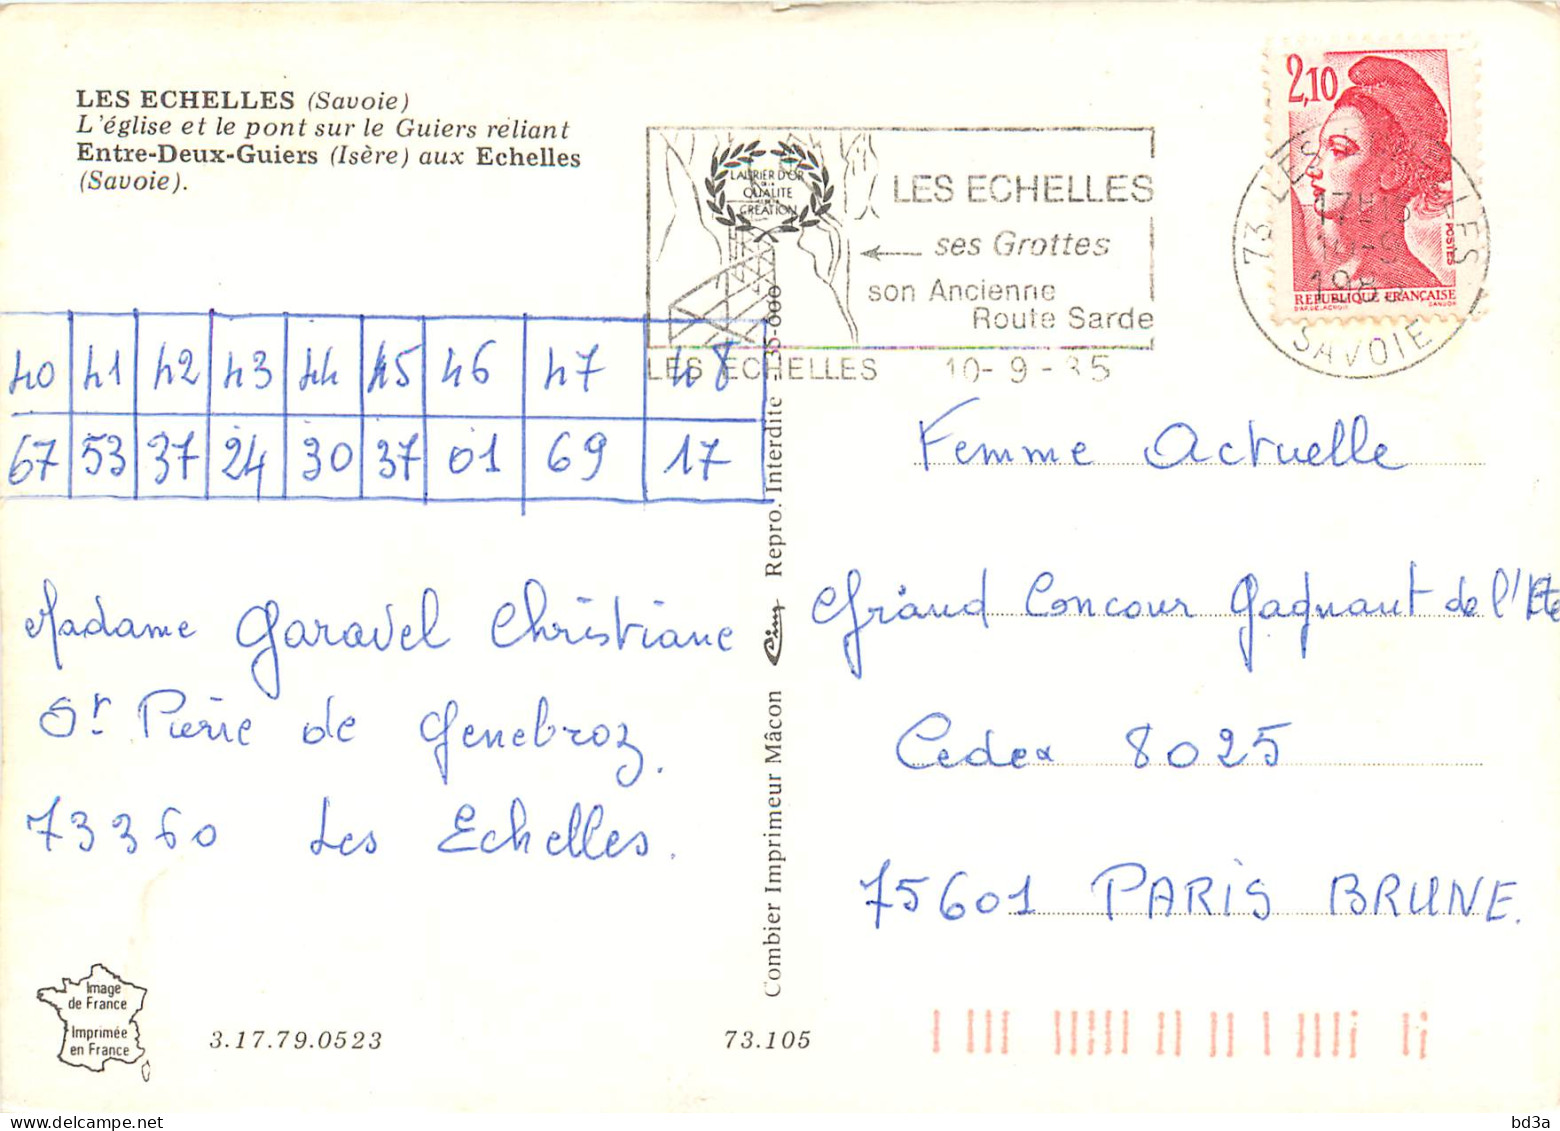 LES ECHELLES (Savoie)
L'église et le pont sur le Guiers reliant
Entre-Deux-Guiers (Isère) aux Echelles
(Savoie).
LAURIER D'OR
QUALITE
CREATION
LES ECHELLES
ses Grottes
son Ancienne
Route Sarde
LES ECHELLES 10-9-85
2,10
POSTES
REPUBLIQUE FRANÇAISE
73 LES ECHELLES
17H
10-9
198
SAVOIE
40 41 42 43 44 45 46 47 48
67 53 37 24 30 37 01 69 17
Madame Garavel Christiane
St Pierre de Genebroz.
73360 Les Echelles.
Femme Actuelle
Grand Concour Gagnant de l'Eté
Cedex 8025
75601 PARIS BRUNE.
Combier Imprimeur Mâcon Cim Repro. Interdite 35-000
Image
de France
Imprimée
en France
3.17.79.0523
73.105
bd3a